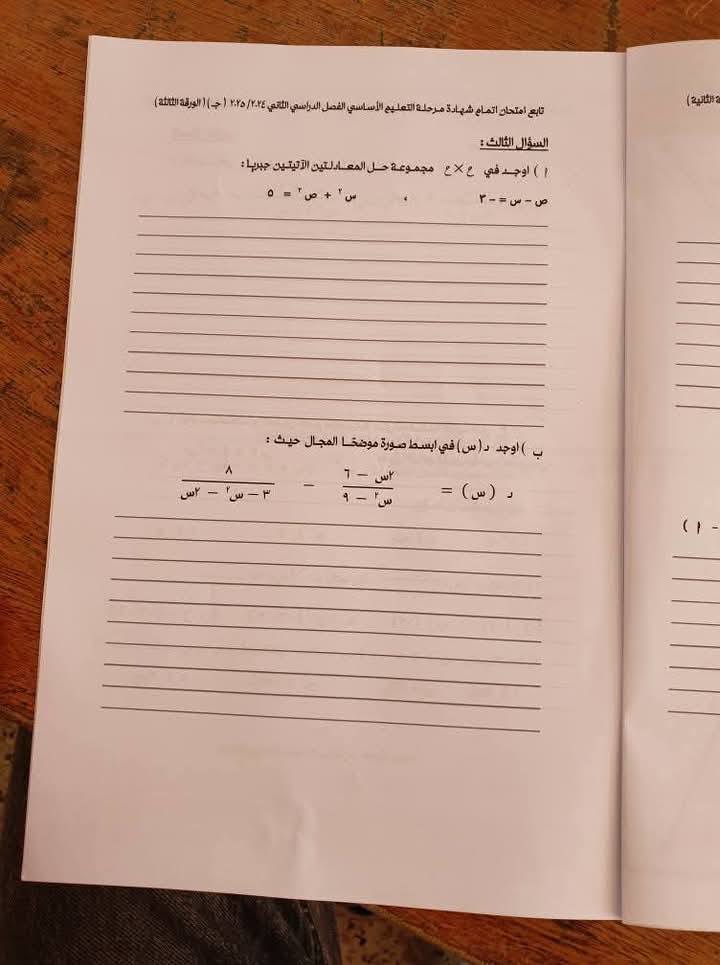 تابع امتحان اتمام شهادة مرحلة التعليم الأساسي الفصل الدراسي الثاني ٢٠٢٤/٢٠٢٥ (جـ) (الورقة الثالثة)
السؤال الثالث :
أ ) اوجد في ح × ح مجموعة حل المعادلتين الآتيتين جبريا :
ص - س = - ٣ ، س ٢ + ص ٢ = ٥
ب ) اوجد د (س) في ابسط صورة موضحا المجال حيث :
د ( س ) = ٢س - ٦ / س٢ - ٩ - ٨ / ٣ - س٢ - ٢س
الثانية )
- ١ )